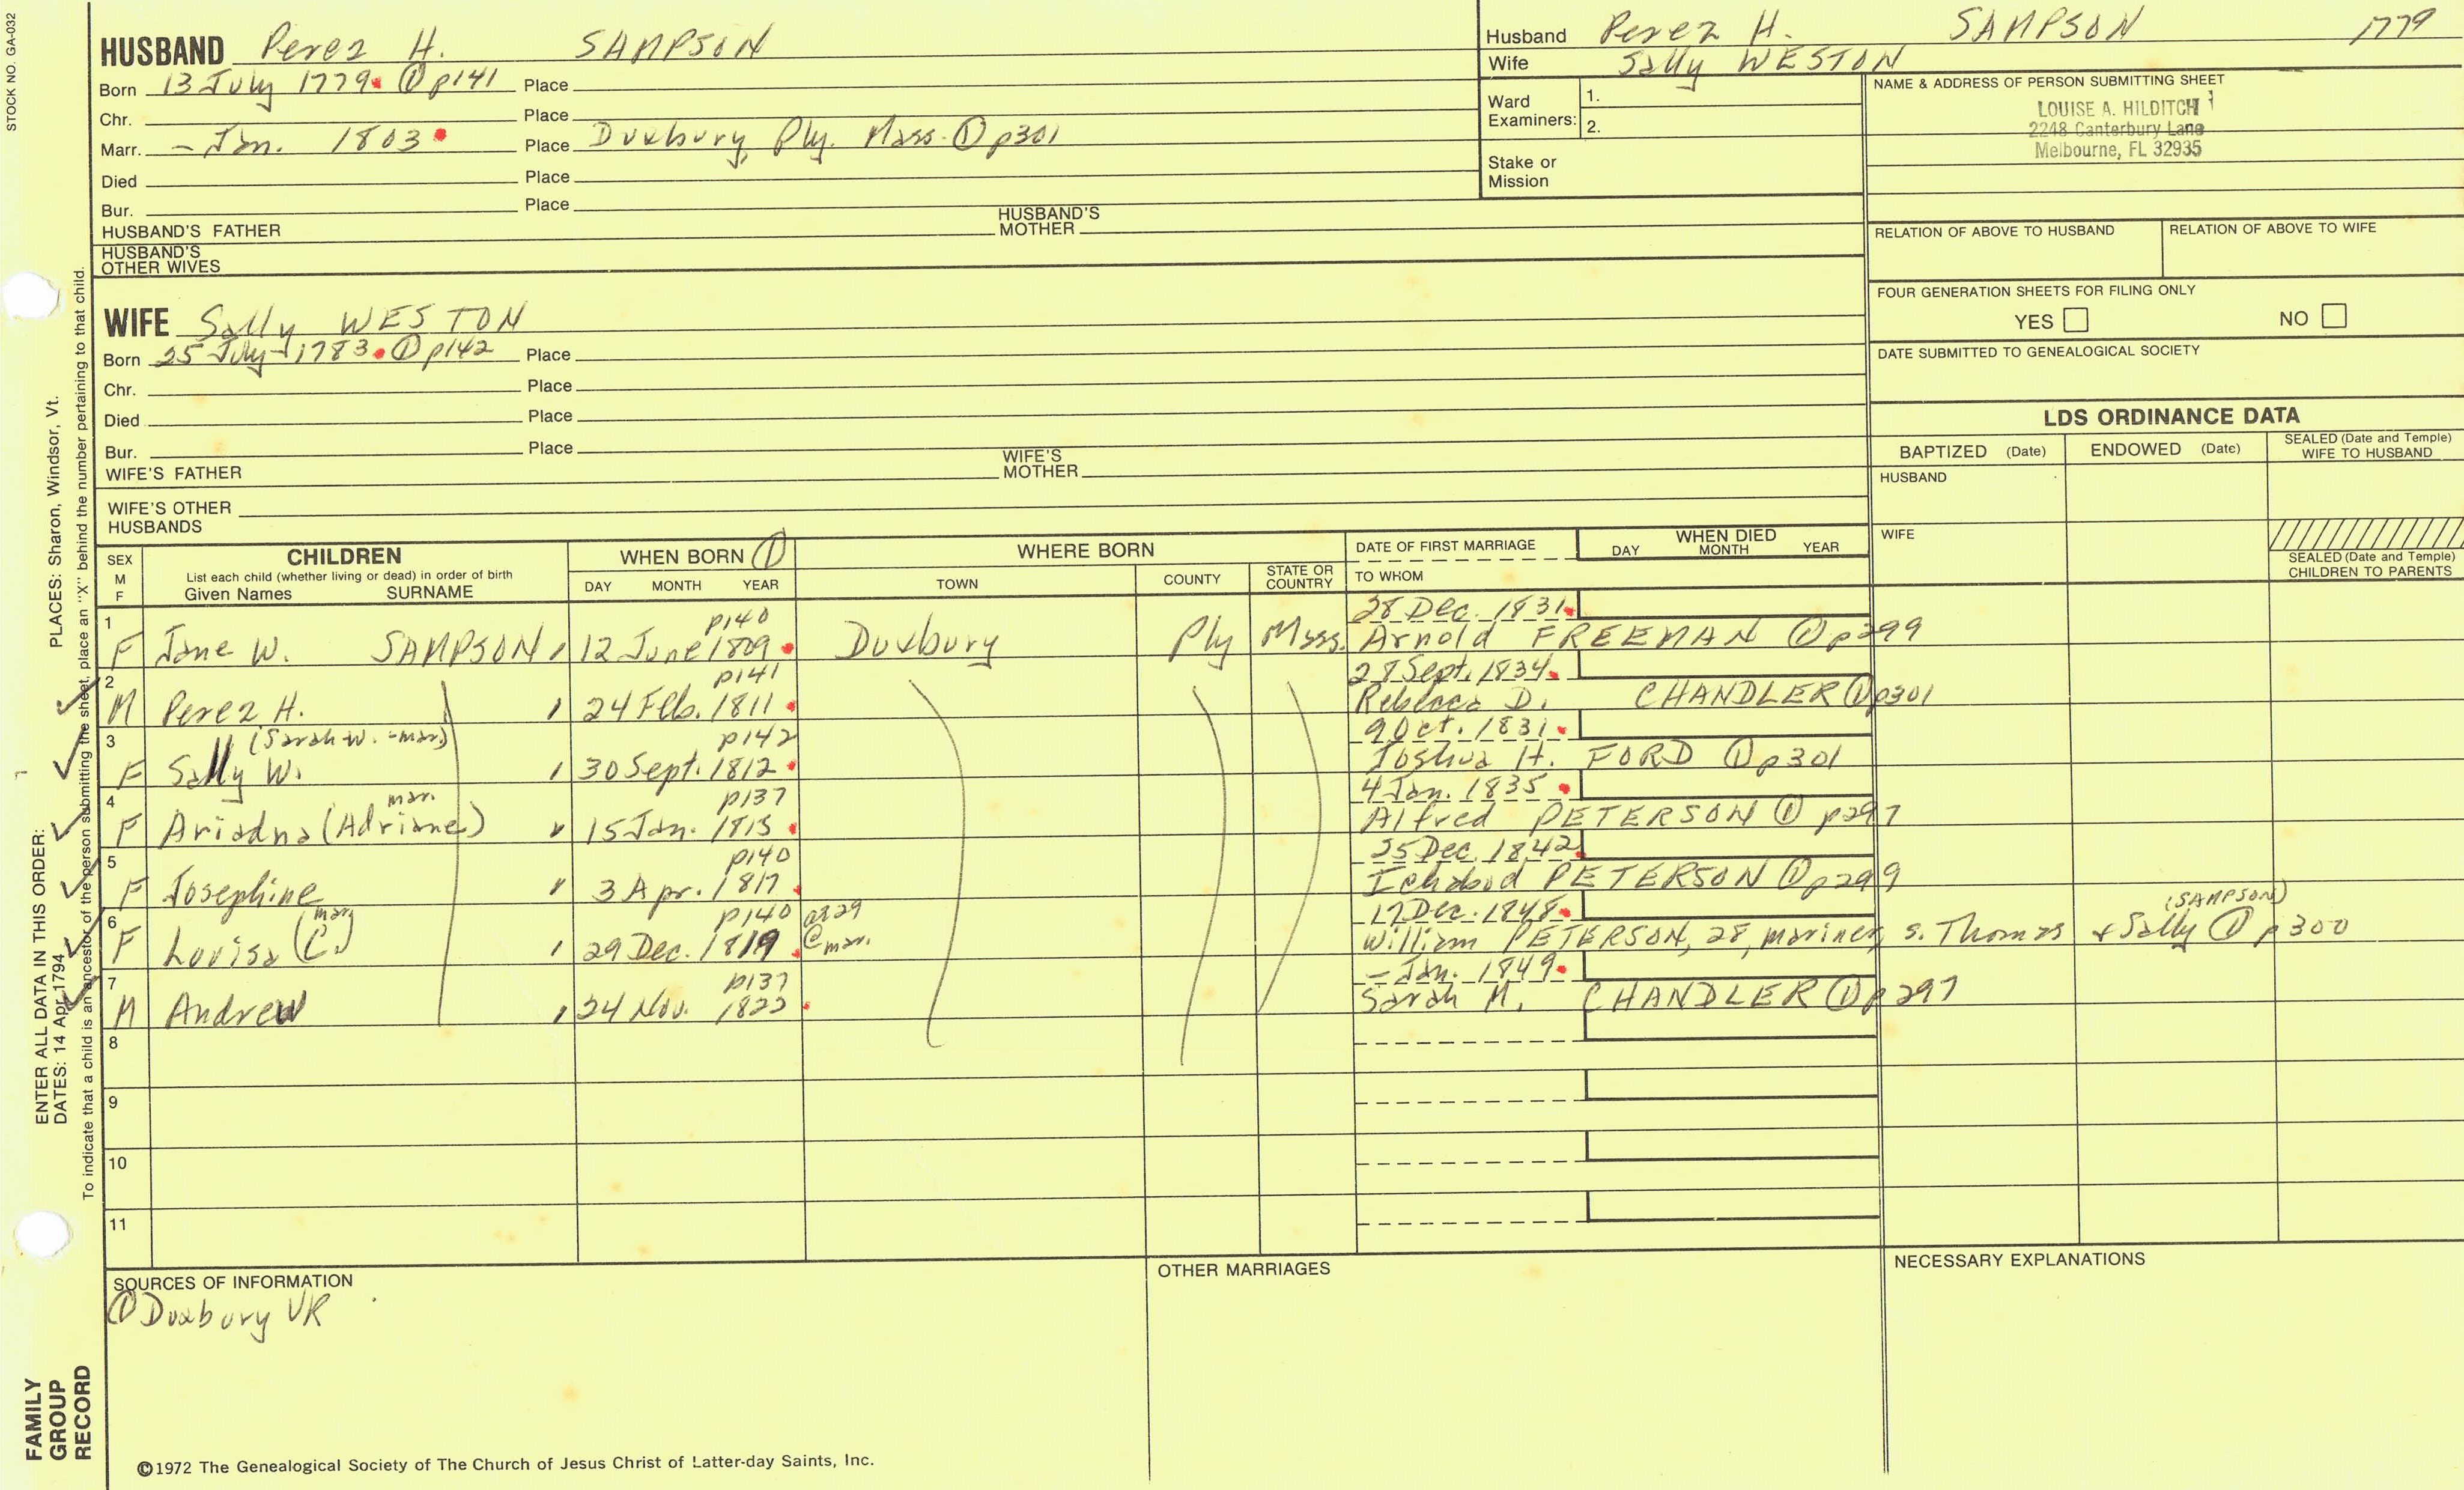 STOCK NO. GA-032
HUSBAND Perez H. SAMPSON
Born 13 July 1779 ① p141 Place
Chr. Place
Marr. - Jan. 1803 Place Duxbury, Ply. Mass. ① p301
Died Place
Bur. Place
HUSBAND'S FATHER HUSBAND'S MOTHER
HUSBAND'S OTHER WIVES
Husband Perez H. SAMPSON 1779
Wife Sally WESTON
Ward Examiners: 1.
2.
Stake or Mission
NAME & ADDRESS OF PERSON SUBMITTING SHEET
LOUISE A. HILDITCH
2248 Canterbury Lane
Melbourne, FL 32935
RELATION OF ABOVE TO HUSBAND RELATION OF ABOVE TO WIFE
FOUR GENERATION SHEETS FOR FILING ONLY
YES NO
DATE SUBMITTED TO GENEALOGICAL SOCIETY
WIFE Sally WESTON
Born 25 July 1783 ① p142 Place
Chr. Place
Died Place
Bur. Place
WIFE'S FATHER WIFE'S MOTHER
WIFE'S OTHER HUSBANDS
LDS ORDINANCE DATA
BAPTIZED (Date) ENDOWED (Date) SEALED (Date and Temple) WIFE TO HUSBAND
HUSBAND
WIFE
SEALED (Date and Temple) CHILDREN TO PARENTS
SEX M F
CHILDREN
List each child (whether living or dead) in order of birth
Given Names SURNAME
WHEN BORN ①
DAY MONTH YEAR
WHERE BORN
TOWN COUNTY STATE OR COUNTRY
DATE OF FIRST MARRIAGE
TO WHOM
WHEN DIED
DAY MONTH YEAR
1 p140 28 Dec. 1831
F Jane W. SAMPSON 12 June 1809 Duxbury Ply Mass. Arnold FREEMAN ① p299
2 p141 28 Sept. 1834
M Perez H. 24 Feb. 1811 Rebecca D. CHANDLER ① p301
3 (Sarah W. - mar) p142 9 Oct. 1831
F Sally W. 30 Sept. 1812 Joshua H. FORD ① p301
4 mar. p137 4 Jan. 1835
F Ariadna (Adriane) 15 Jan. 1815 Alfred PETERSON ① p297
5 p140 25 Dec. 1842
F Josephine 3 Apr. 1817 Ichabod PETERSON ① p299
6 mar p140 a29 17 Dec. 1848 (SAMPSON)
F Lovisa (C.) 29 Dec. 1819 @ mar. William PETERSON, 28, mariner, s. Thomas + Sally ① p300
7 p137 - Jan. 1849
M Andrew 24 Nov. 1822 Sarah M. CHANDLER ① p297
8
9
10
11
SOURCES OF INFORMATION
① Duxbury VR
OTHER MARRIAGES
NECESSARY EXPLANATIONS
©1972 The Genealogical Society of The Church of Jesus Christ of Latter-day Saints, Inc.
FAMILY GROUP RECORD
ENTER ALL DATA IN THIS ORDER: PLACES: Sharon, Windsor, Vt.
DATES: 14 Apr 1794
To indicate that a child is an ancestor of the person submitting the sheet, place an "X" behind the number pertaining to that child.